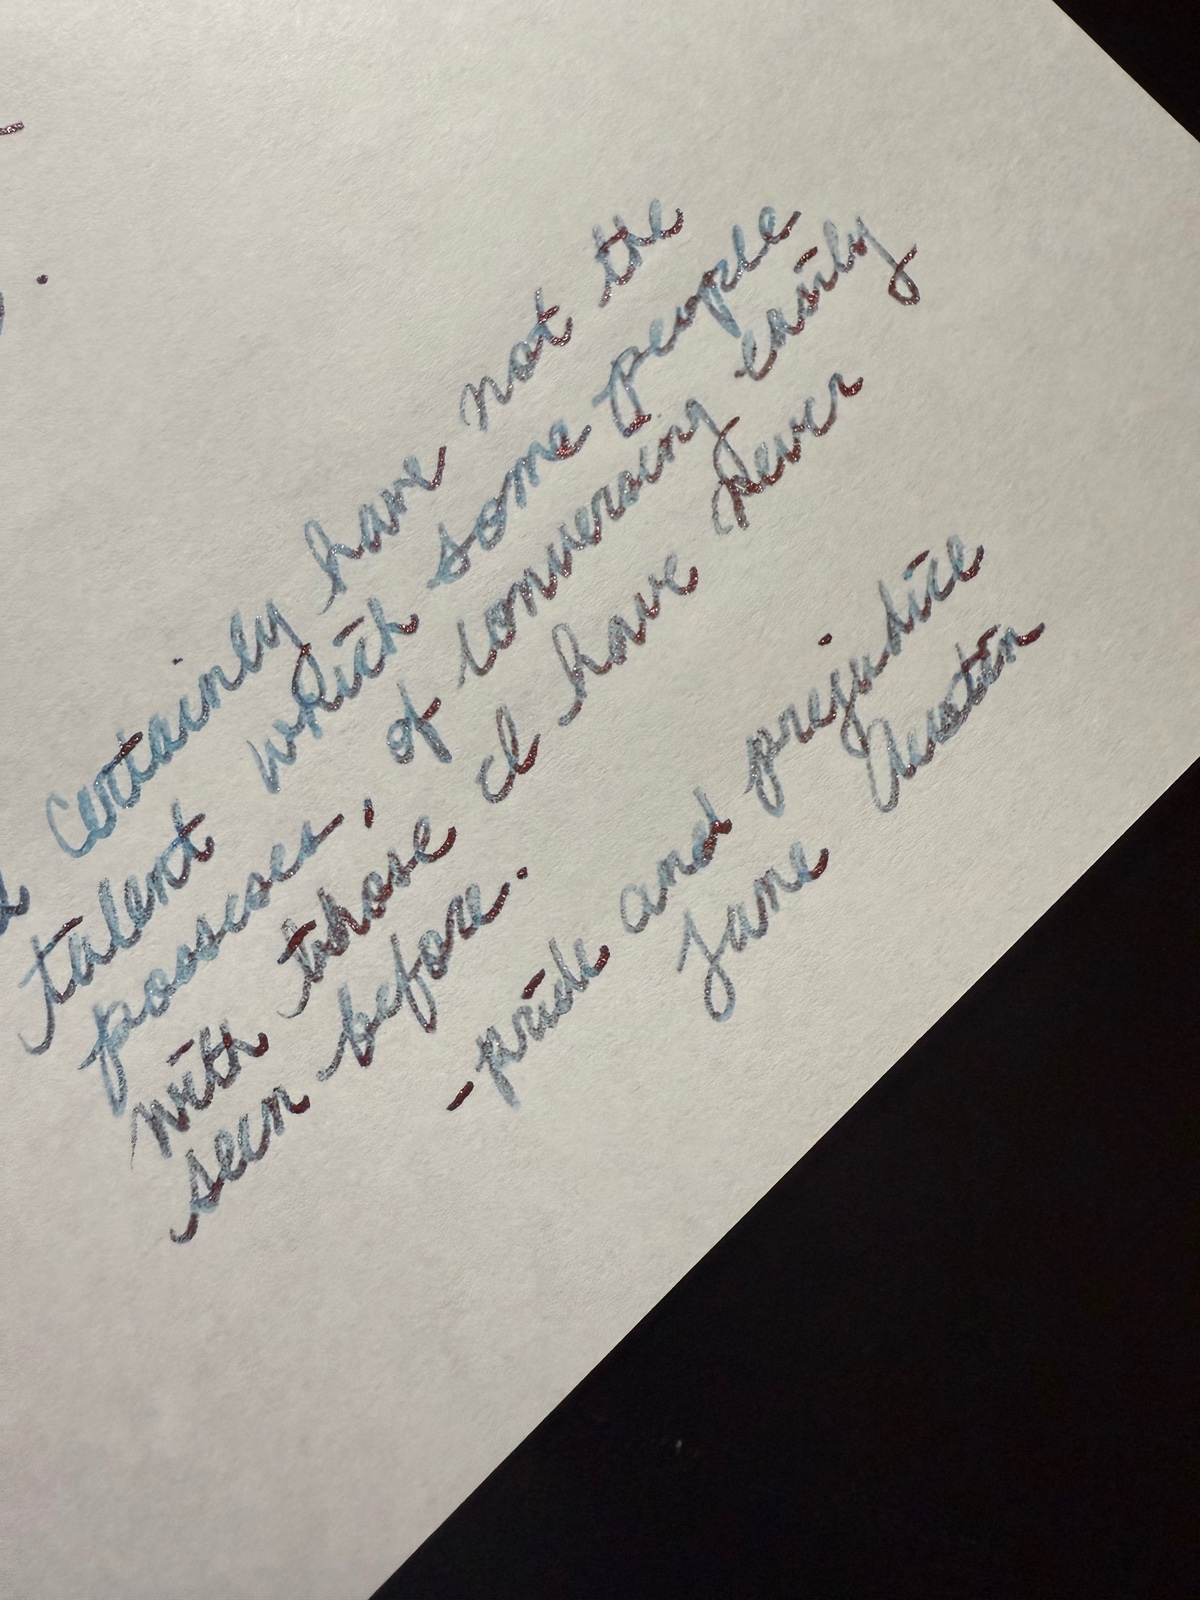 certainly have not the
talent which some people
possess, of conversing easily
with those I have never
seen before.
- pride and prejudice
Jane Austin